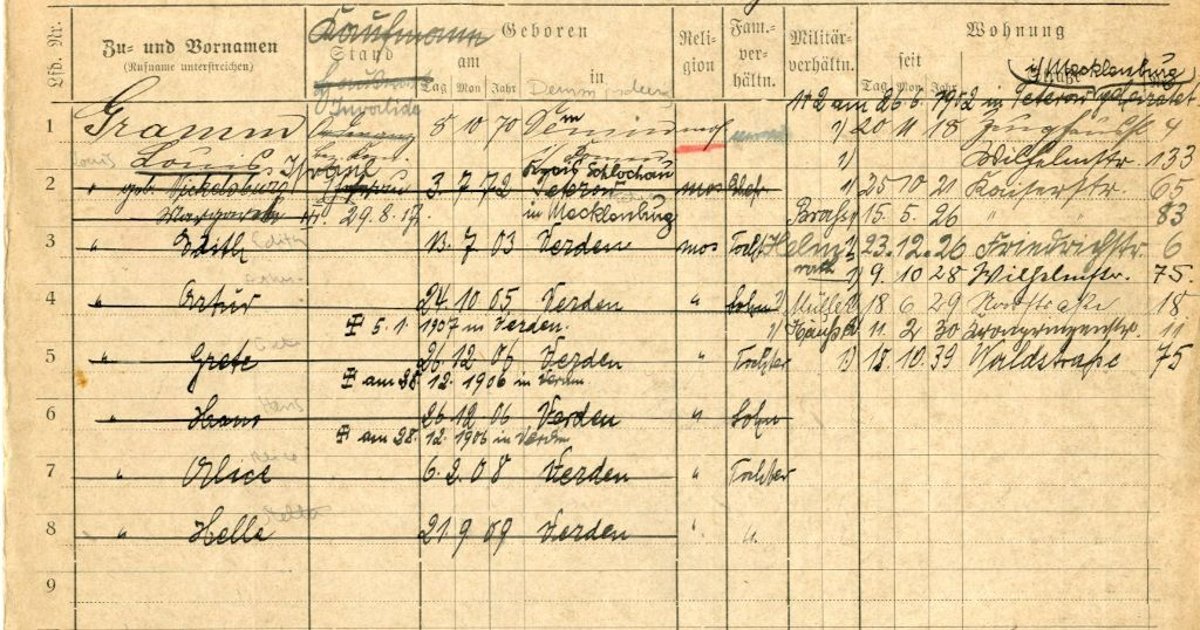 Lfd. Nr. Zu- und Vornamen Kaufmann Geboren Reli- Fam.- Militär- Wohnung
(Rufname unterstreichen) Stand am in gion ver- verhältn. seit i/Mecklenburg
Invalide Tag Mon. Jahr hältn. Tag Mon. Jahr Straße
am 26. 6. 1902 in Teterow geheiratet
1 Gramm 8 10 70 Demmin mos 1) 20 11 18 Zeughausstr. 4
Louis Louis Israel 1) Wilhelmstr. 133
Kreis Schlochau
2 " geb. Nickelsburg Ehefrau 3. 7 72 Teterow mos Ehefr 1) 25 10 21 Kaiserstr. 65
Margarete 29. 8. 17. in Mecklenburg 15. 5. 26 " " 83
3 " Edith Edith 13. 7 03 Verden mos Tocht 23. 12. 26 Friedrichstr. 6
1) 9. 10 28 Wilhelmstr. 75.
4 " Artur 24. 10 05 Verden " Sohn Müller 18 6 29 18
5. 1. 1907 in Verden. 11. 2 30 Kronprinzenstr. 11
5 " Grete 26. 12 06 Verden " Tochter 1) 18. 10. 39 Waldstraße 75
am 28. 12. 1906 in Verden
6 " Hans Hans 26 12 06 Verden " Sohn
am 28. 12. 1906 in Verden
7 " Alice Alice 6. 2. 08 Verden " Tochter
8 " Helle 21 9 09 Verden " "
9